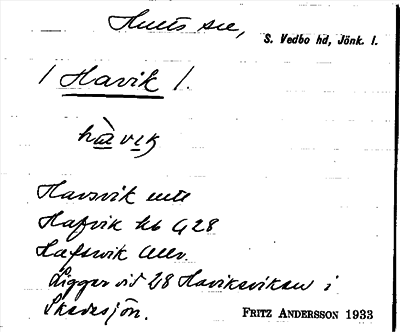 Hults sn,
S. Vedbo hd, Jönk. l.
/ Havik /.
Havsvik
Hafvik kb 1628
Hafswik
Ligger vid Haviksviken i
Skedesjön.
FRITZ ANDERSSON 1933